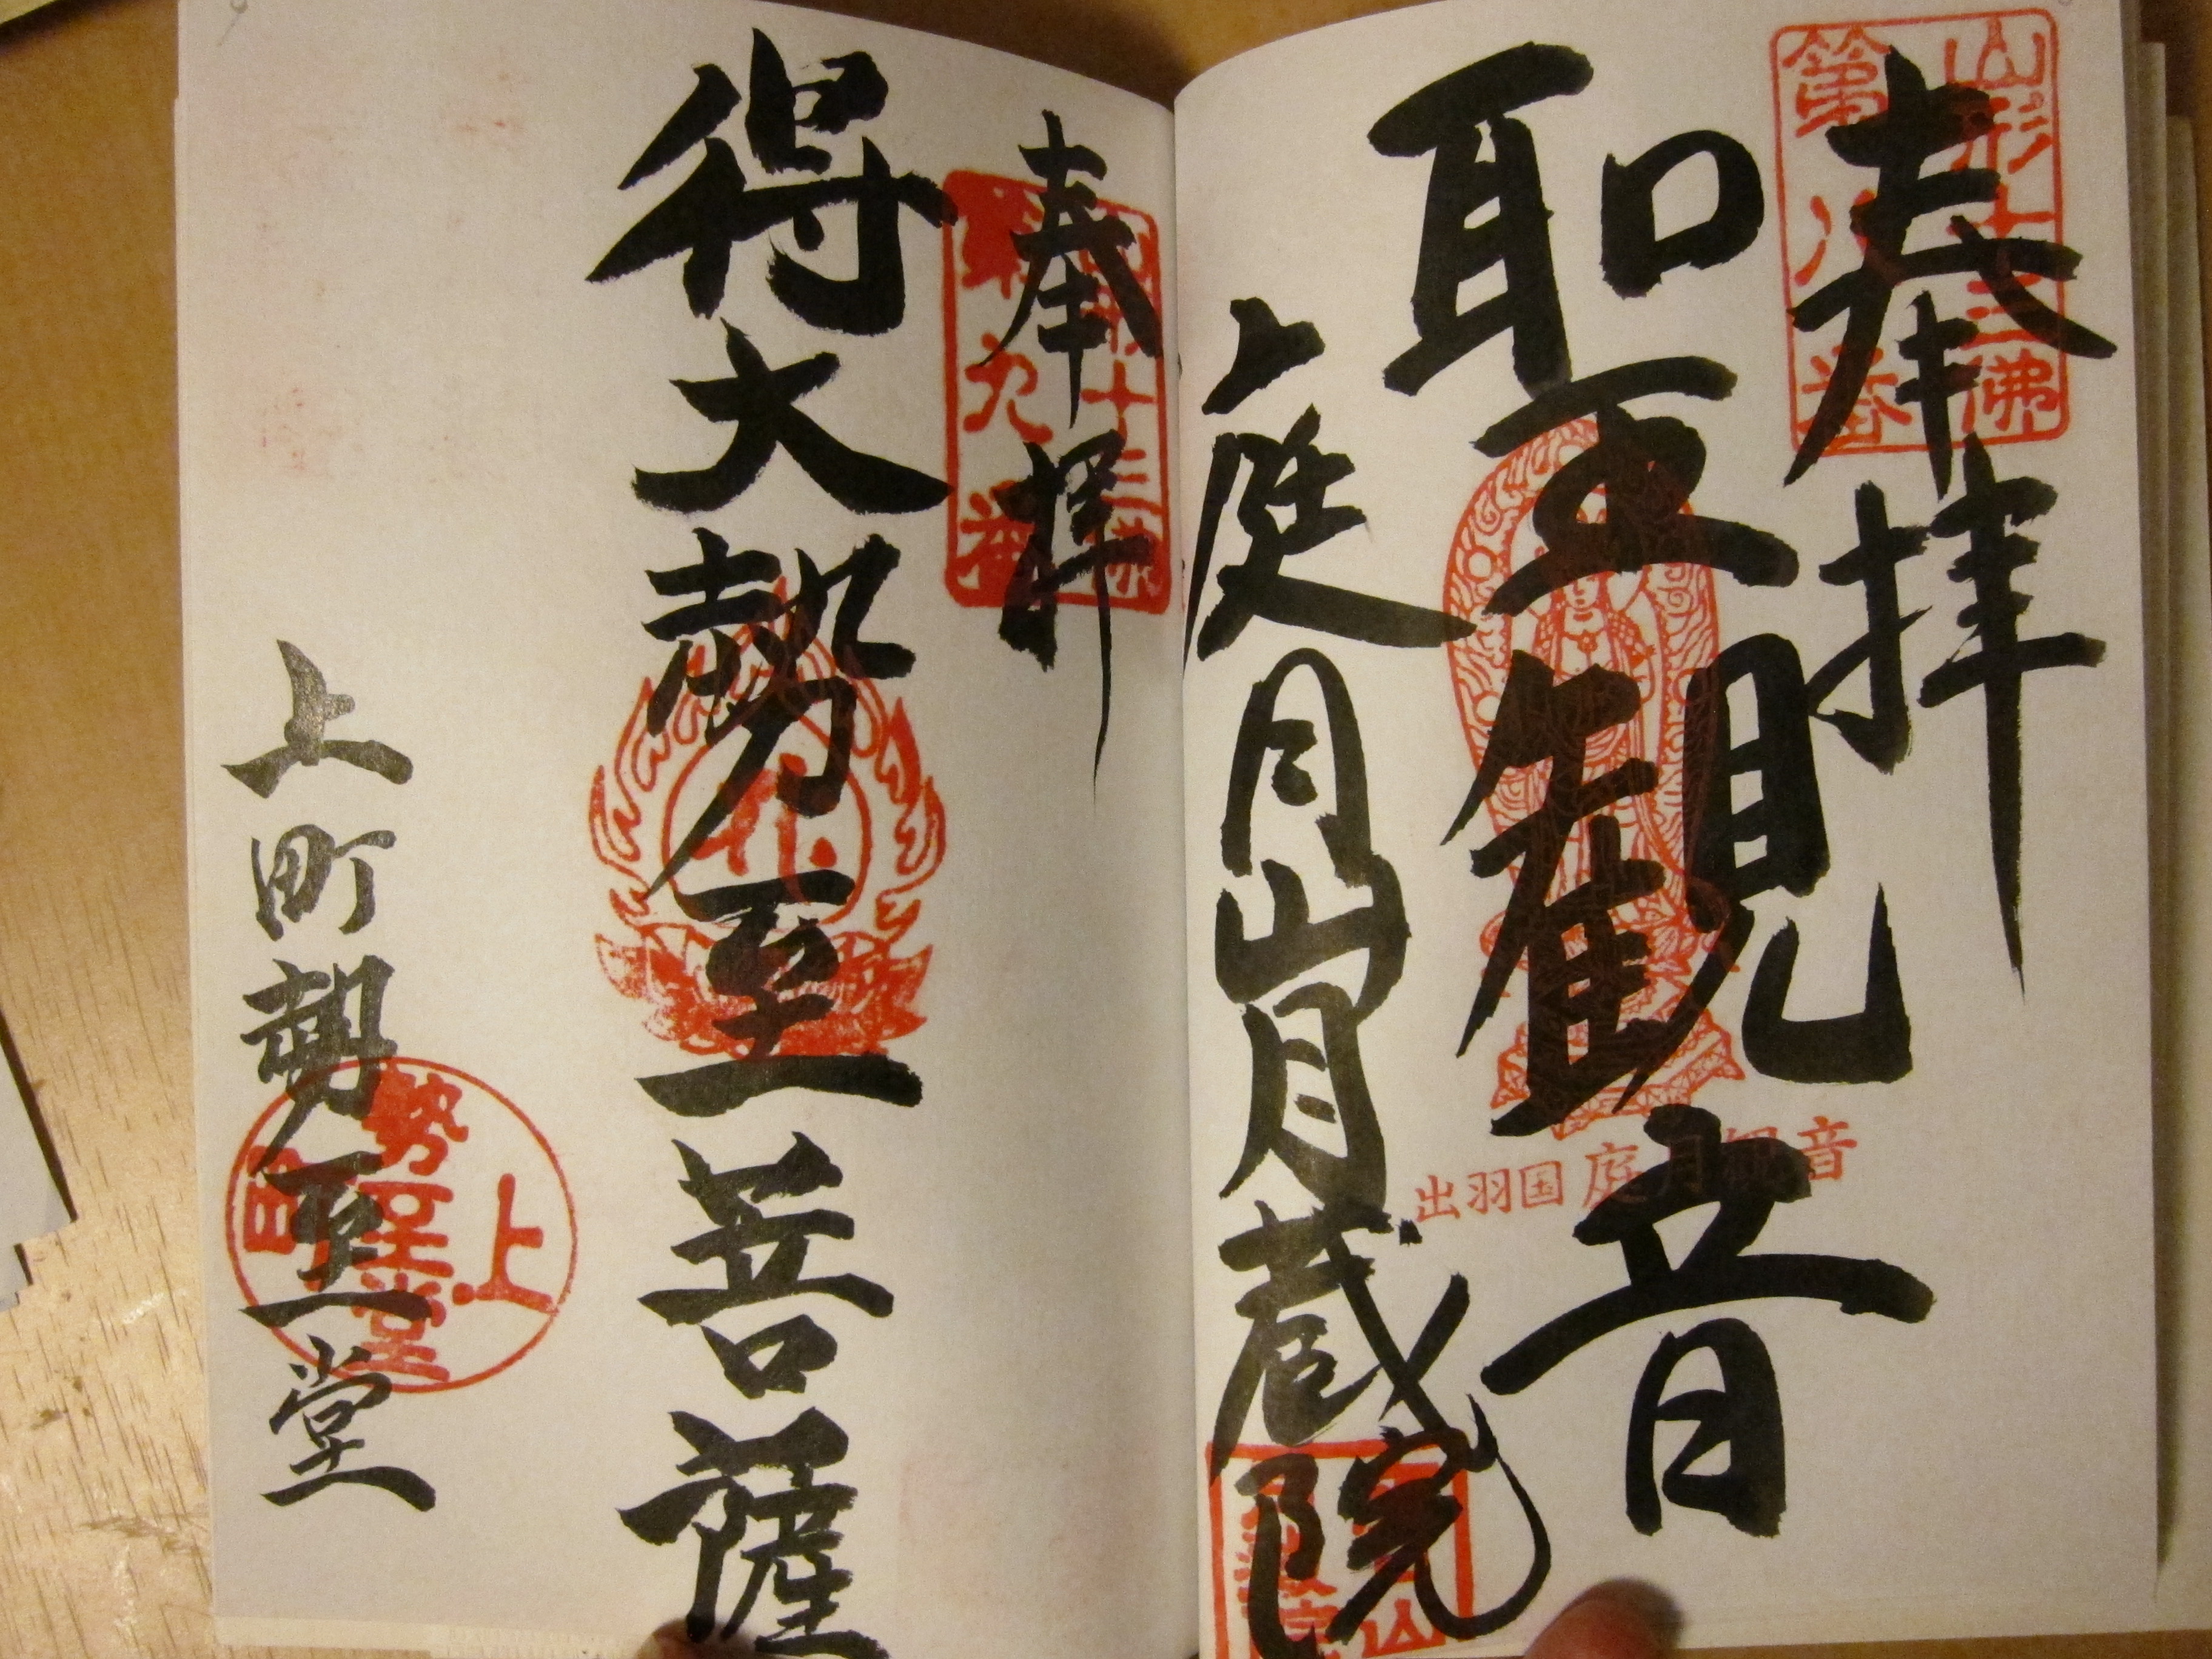 奉拝
山形十三佛
第八番
聖観音
出羽国 庭月観音
庭月山月蔵院
奉拝
十三
第九番
得大勢至菩薩
上町勢至堂
上町
勢至堂